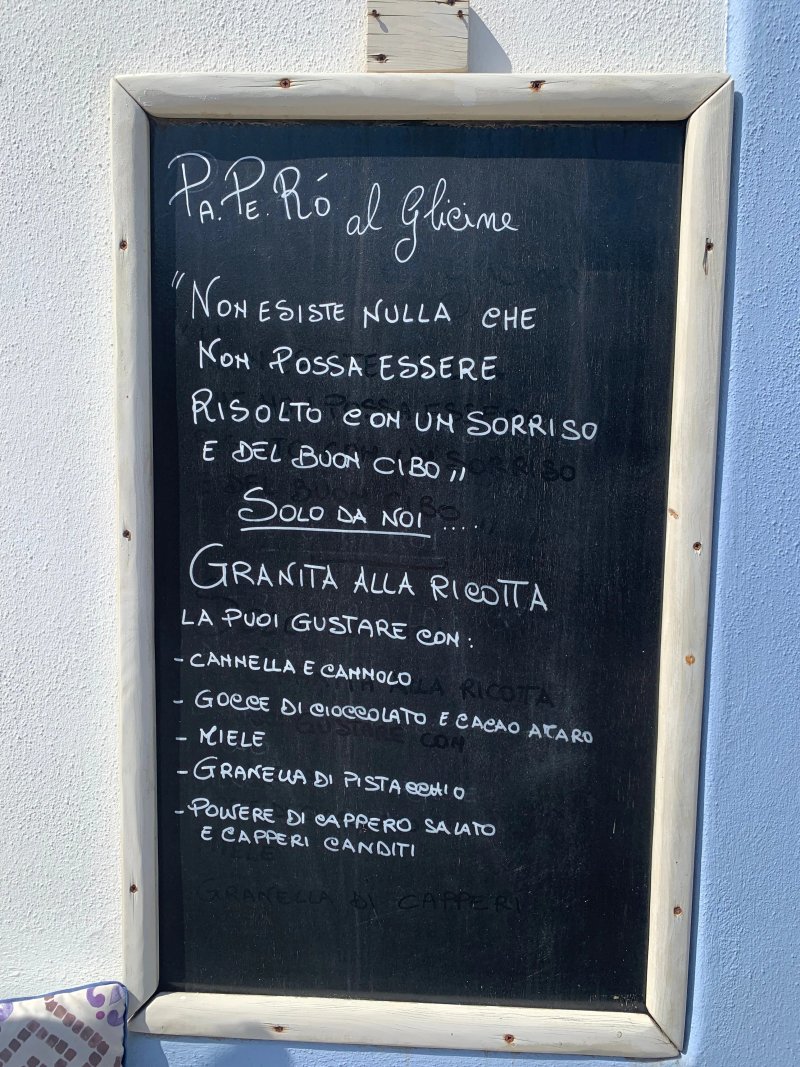 Pa.Pe.Ró al Glicine
"Non esiste nulla che
non possa essere
risolto con un sorriso
e del buon cibo,,
Solo da noi .....
Granita alla ricotta
la puoi gustare con:
- cannella e cannolo
- gocce di cioccolato e cacao amaro
- miele
- granella di pistacchio
- polvere di cappero salato
e capperi canditi
granella di capperi